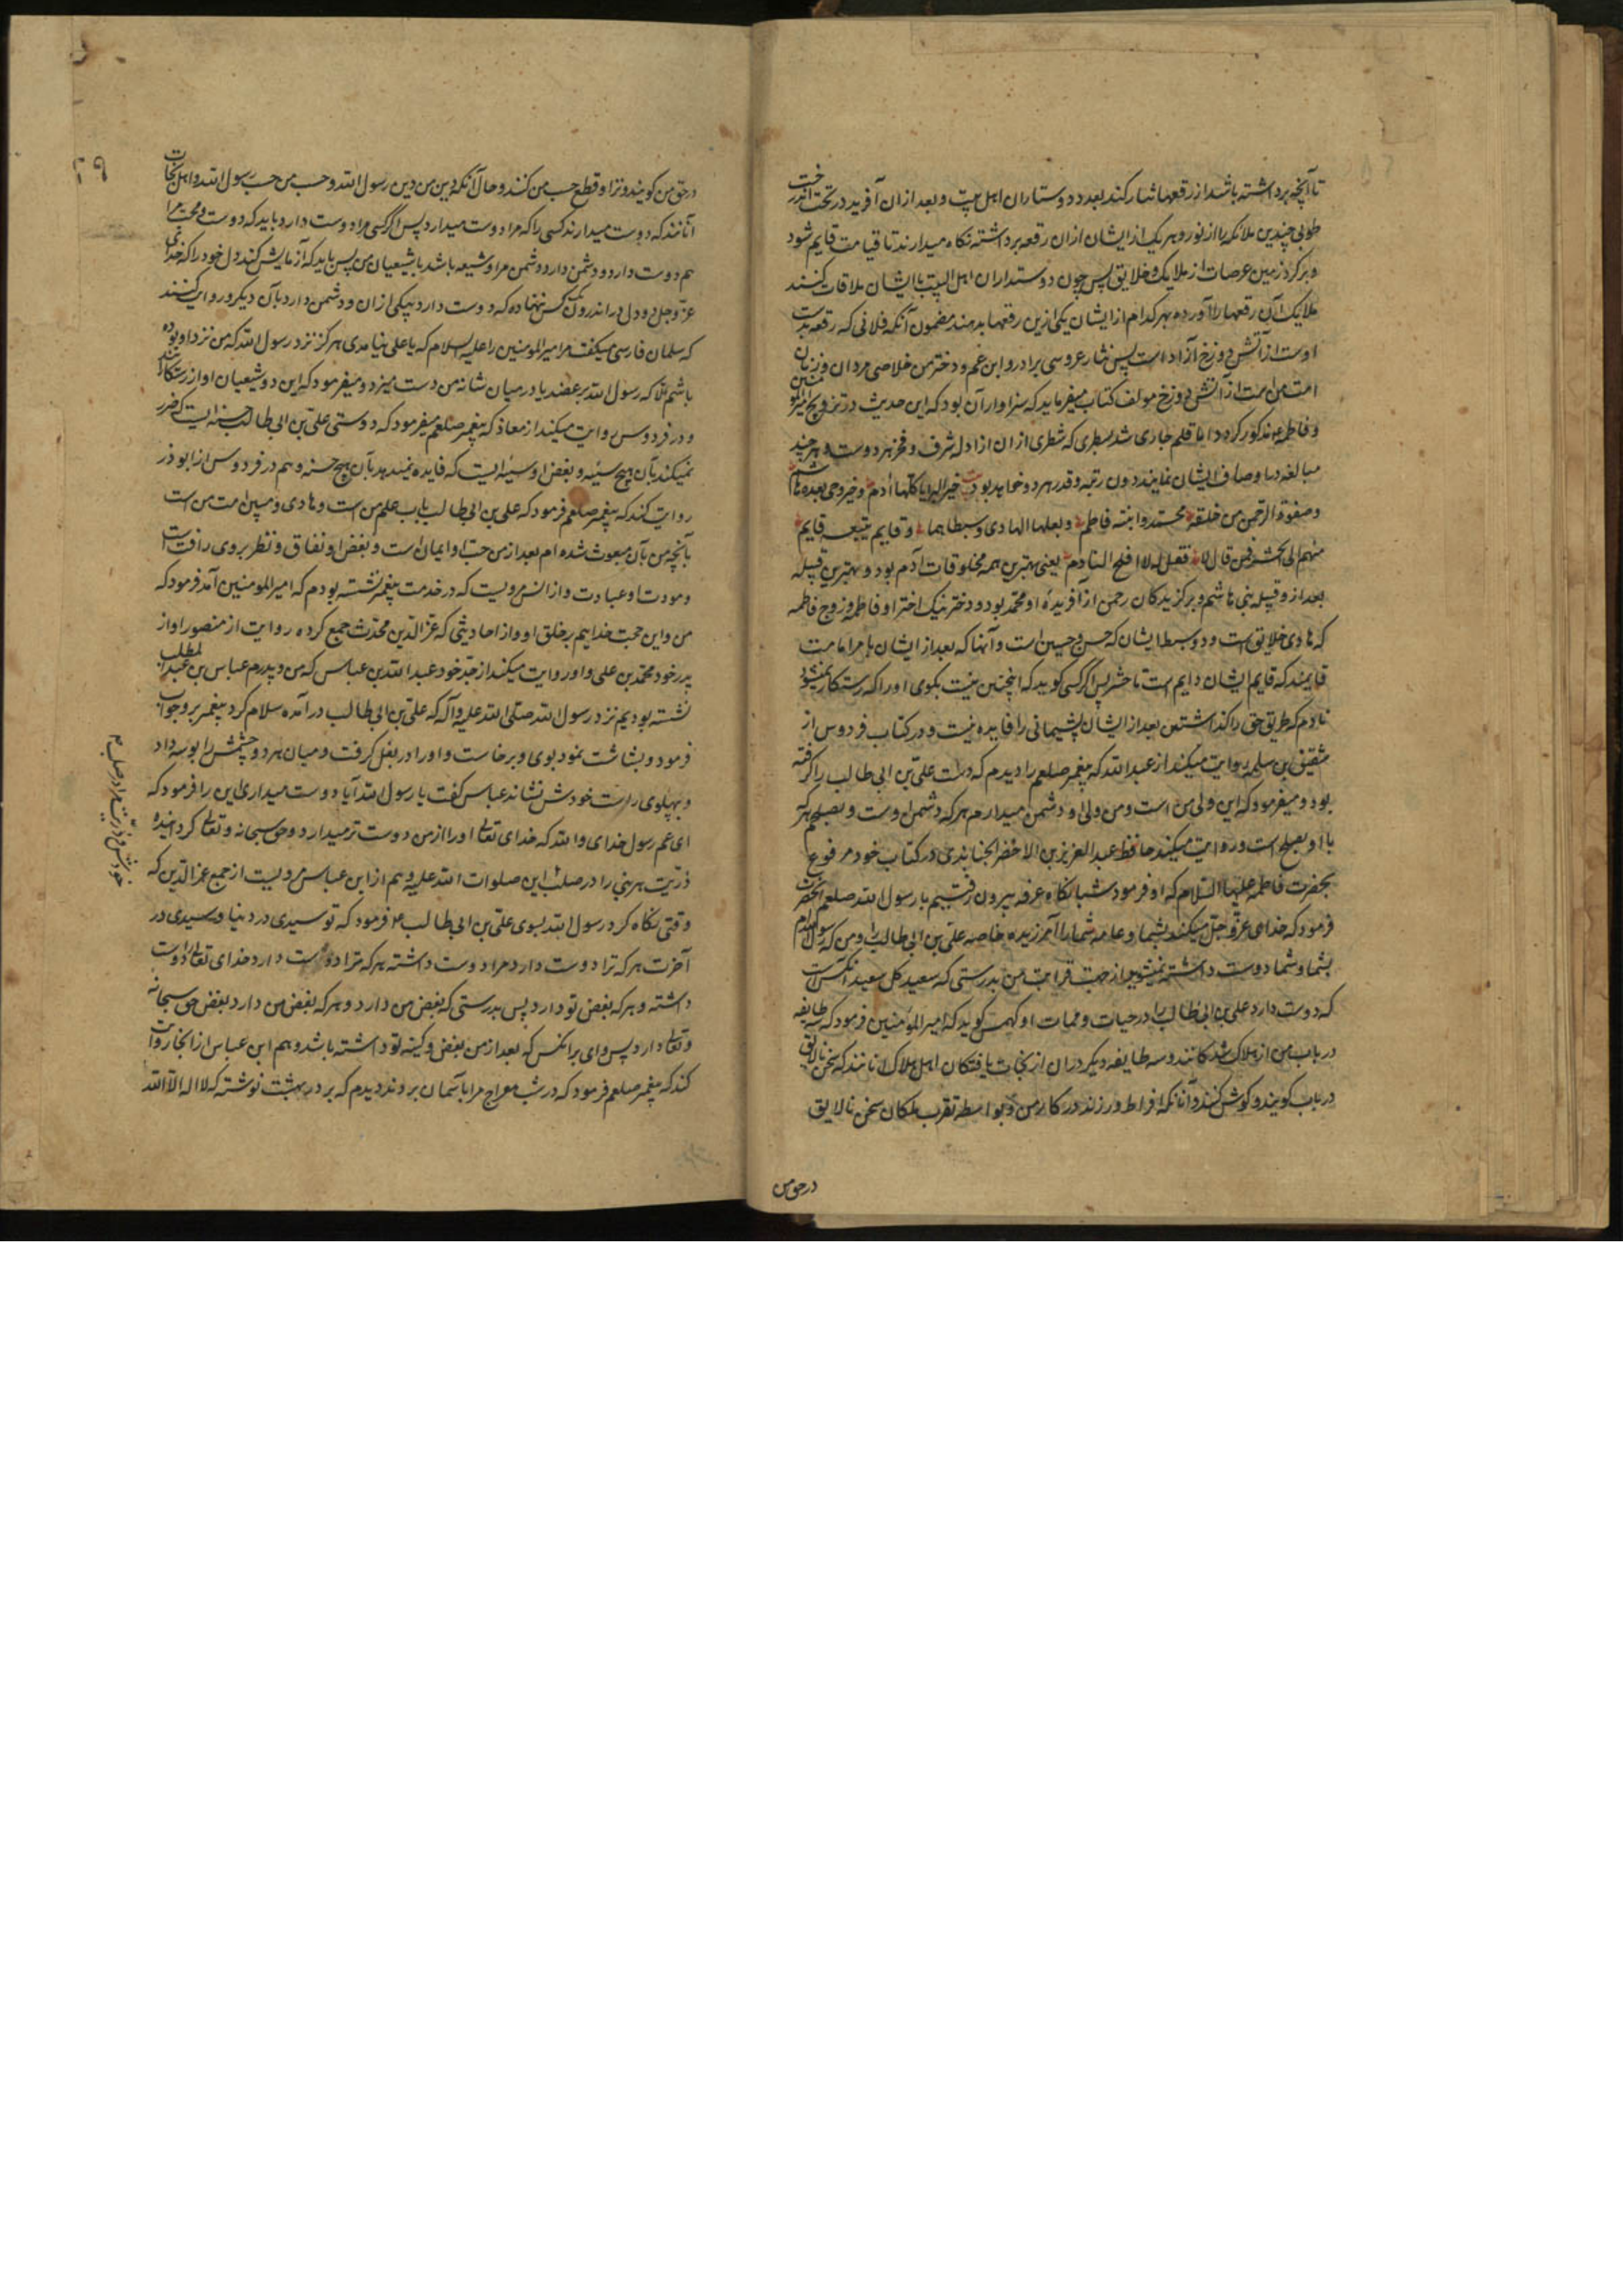 تا آنچه برداشته باشد از رقعها نثار کند بعدد دوستاران اهل بیت و بعد از ان آفرید در تحت درخت
طوبی چندین ملائکه را از نور و هر یک از ایشان ازان رقعه برداشته نگاه میدارند تا قیامت قایم شود
و بر کرد زمین عرصات از ملایک و خلایق پس چون دوستداران اهل البیت با ایشان ملاقات کنند
ملایک آن رقعها را آورده بهر کدام از ایشان یکی ازین رقعها بدهند مضمون آنکه فلانی که رقعه بدست
اوست از آتش دوزخ آزاد است پس نثار عروسی برادر و ابن عم و دختر من خلاصی مردان و زنان
امت من است از آتش دوزخ مولف کتاب میفرماید که سزاوار آن بود که این حدیث در تزویج امیر المومنین
و فاطمه مذکور کردد اما قلم جاری شد بسطری که شطری ازان از ادله شرف و فخر هر دوست و هر چند
مبالغه در اوصاف ایشان نمایند دون رتبه و قدر هر دو خواهد بود خیر البرایا کلها آدم و خیر حی بعده هاشم
و صفوة الرحمن من خلقه محمد و ابنته فاطم و بعلها الهادی و سبطاهما و قایم یتبعه قایم
منهم الی الحشر فمن قال لا فقل له لا افلح النادم یعنی بهترین همه مخلوقات آدم بود و بهترین قبیله
بعد ازو قبیله بنی هاشم و برکزیدکان رحمن از آفریده او محمد بود و دختر نیک اختر او فاطمه و زوج فاطمه
که هادی خلایق است و دو سبط ایشان که حسن و حسین است و آنها که بعد از ایشان بامر امامت
قایمند که قایم ایشان دایم است تا حشر پس اگر کسی کوید که اینچنین نیست بکوی او را که رستکار نمیشود
نادم که طریق حق را کذاشتن بعد از ایشان پشیمانی را فایده نیست و در کتاب فردوس از
شقیق بن سلمه روایت میکند از عبد الله که پیغمبر صلعم را دیدم که دست علی بن ابی طالب را کرفته
بود و میفرمود که این ولی من است و من ولی او و دشمن میدارم هر که دشمن اوست و بصلحم هر که
با او بصلح است و روایت میکند حافظ عبد العزیز بن الاخضر الجنابذی در کتاب خود مرفوع
بحضرت فاطمه علیها السلام که او فرمود شبانکاه عرفه بیرون رفتیم با رسول الله صلعم آنحضرت
فرمود که خدای عزوجل میکند بشما و عامه شما را آمرزیده خاصه علی بن ابی طالب را و من که رسول
بشما و شما دوست داشته نمیشوید از جهت قرابت من بدرستی که سعید کل سعید آنکس است
که دوست دارد علی بن ابی طالب را در حیات و ممات او کهمس کوید که امیر المومنین فرمود که سه طایفه
در باب من از هلاک شدکانند و سه طایفه دیکر دران از نجات یافتکان اهل هلاک آنانند که سخن نالایق
در باب کویند و کوش کنند و آنانکه افراط ورزند در کار من و بواسطه تقرب ملکان سخن نالایق
در حق من
۲۹
در حق من کویند و نزد او قطع حسب من کنند و حال آنکه دین من دین رسول الله و حسب من حسب رسول الله و اهل نجات
آنانند که دوست میدارند کسی را که مرا دوست میدارد پس اگر کسی مرا دوست دارد باید که دوست و محب مرا
هم دوست دارد و دشمن دارد دشمن مرا و شیعه باشد با شیعیان من پس باید که آزمایش کند دل خود را که خدای
عز و جل دو دل در اندرون یک کس ننهاده که دوست دارد بیکی ازان و دشمن دارد بآن دیکر و روایت کنند
که سلمان فارسی میکفت مر امیر المومنین را علیه السلام که یا علی نیامدی هرکز نزد رسول الله که من نزد او بوده
باشم الا که رسول الله بر عضد یا در میان شانه من دست میزد و میفرمود که این و شیعیان او از رستکارانند
و در فردوس روایت میکند از معاذ که پیغمبر صلعم میفرمود که دوستی علی بن ابی طالب حسنه ایست که ضرر
نمیکند بآن هیچ سیئه و بغض او سیئه ایست که فایده نمیدهد بآن هیچ حسنه و هم در فردوس از ابوذر
روایت کند که پیغمبر صلعم فرمود که علی بن ابی طالب باب علم من است و هادی و مبین امت من است
بآنچه من بآن مبعوث شده ام بعد از من حب او ایمان است و بغض او نفاق و نظر بروی رافت است
و مودت او عبادت و از انس مرویست که در خدمت پیغمبر نشسته بودم که امیر المومنین آمد فرمود که
من و این حجت خدایم بر خلق او و از احادیثی که عز الدین محدث جمع کرده روایت از منصور او از
پدر خود محمد بن علی و او روایت میکند از جد خود عبد الله بن عباس که من و پدرم عباس بن عبد المطلب
نشسته بودیم نزد رسول الله صلی الله علیه و آله که علی بن ابی طالب در آمده سلام کرد پیغمبر رد جواب
فرمود و بشاشت نمود بوی و برخاست و او را در بغل کرفت و میان هر دو چشمش را بوسه داد
و بپهلوی راست خودش نشاند عباس کفت یا رسول الله آیا دوست میداری این را فرمود که
ای عم رسول خدای والله که خدای تعالی او را از من دوست تر میدارد و حق سبحانه و تعالی کردانیده
ذریت هر نبی را در صلب این صلوات الله علیه و هم از ابن عباس مرویست از جمع عز الدین که
وقتی نکاه کرد رسول الله بسوی علی بن ابی طالب ۴ فرمود که تو سیدی در دنیا و سیدی در
آخرت هر که ترا دوست دارد مرا دوست داشته هر که مرا دوست دارد خدای تعالی را دوست
داشته و هر که بغض تو دارد پس بدرستی که بغض من دارد و هر که بغض من دارد بغض حق سبحانه
و تعالی دارد پس وای بر آنکس که بعد از من بغض و کینه تو داشته باشد و هم ابن عباس از آنجا روایت
کند که پیغمبر صلعم فرمود که در شب معراج مرا بآسمان بردند دیدم که بر در بهشت نوشته که لا اله الا الله
خودش و ذریت مرا در صلب